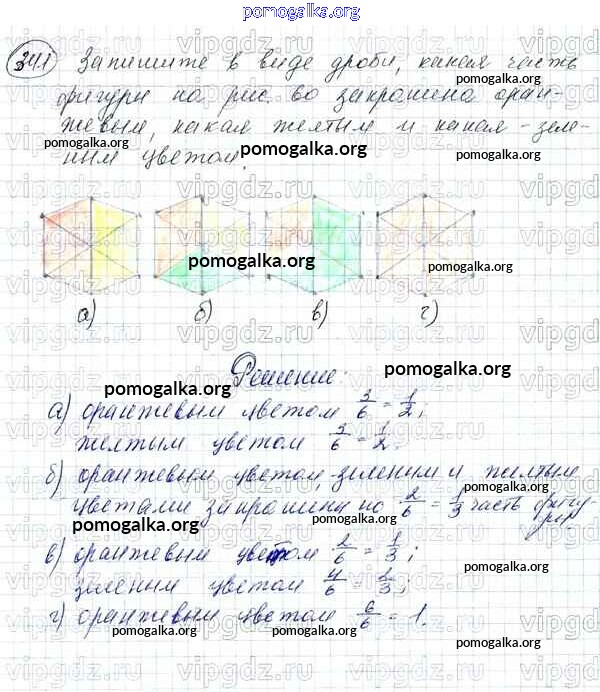 pomogalka.org
341 Запишите в виде дроби, какая часть
фигуры на рис. 60 закрашена оран-
жевым, какая желтым и какая - зеле-
ным цветом.
pomogalka.org
а) б) в) г)
Решение:
а) оранжевым цветом 3/6 = 1/2;
желтым цветом 3/6 = 1/2.
б) оранжевым цветом, зеленым и желтым
цветами закрашена по 2/6 = 1/3 часть фигу-
ры
в) оранжевым цветом 2/6 = 1/3;
зеленым цветом 4/6 = 2/3;
г) оранжевым цветом 6/6 = 1.
pomogalka.org
vipgdz.ru